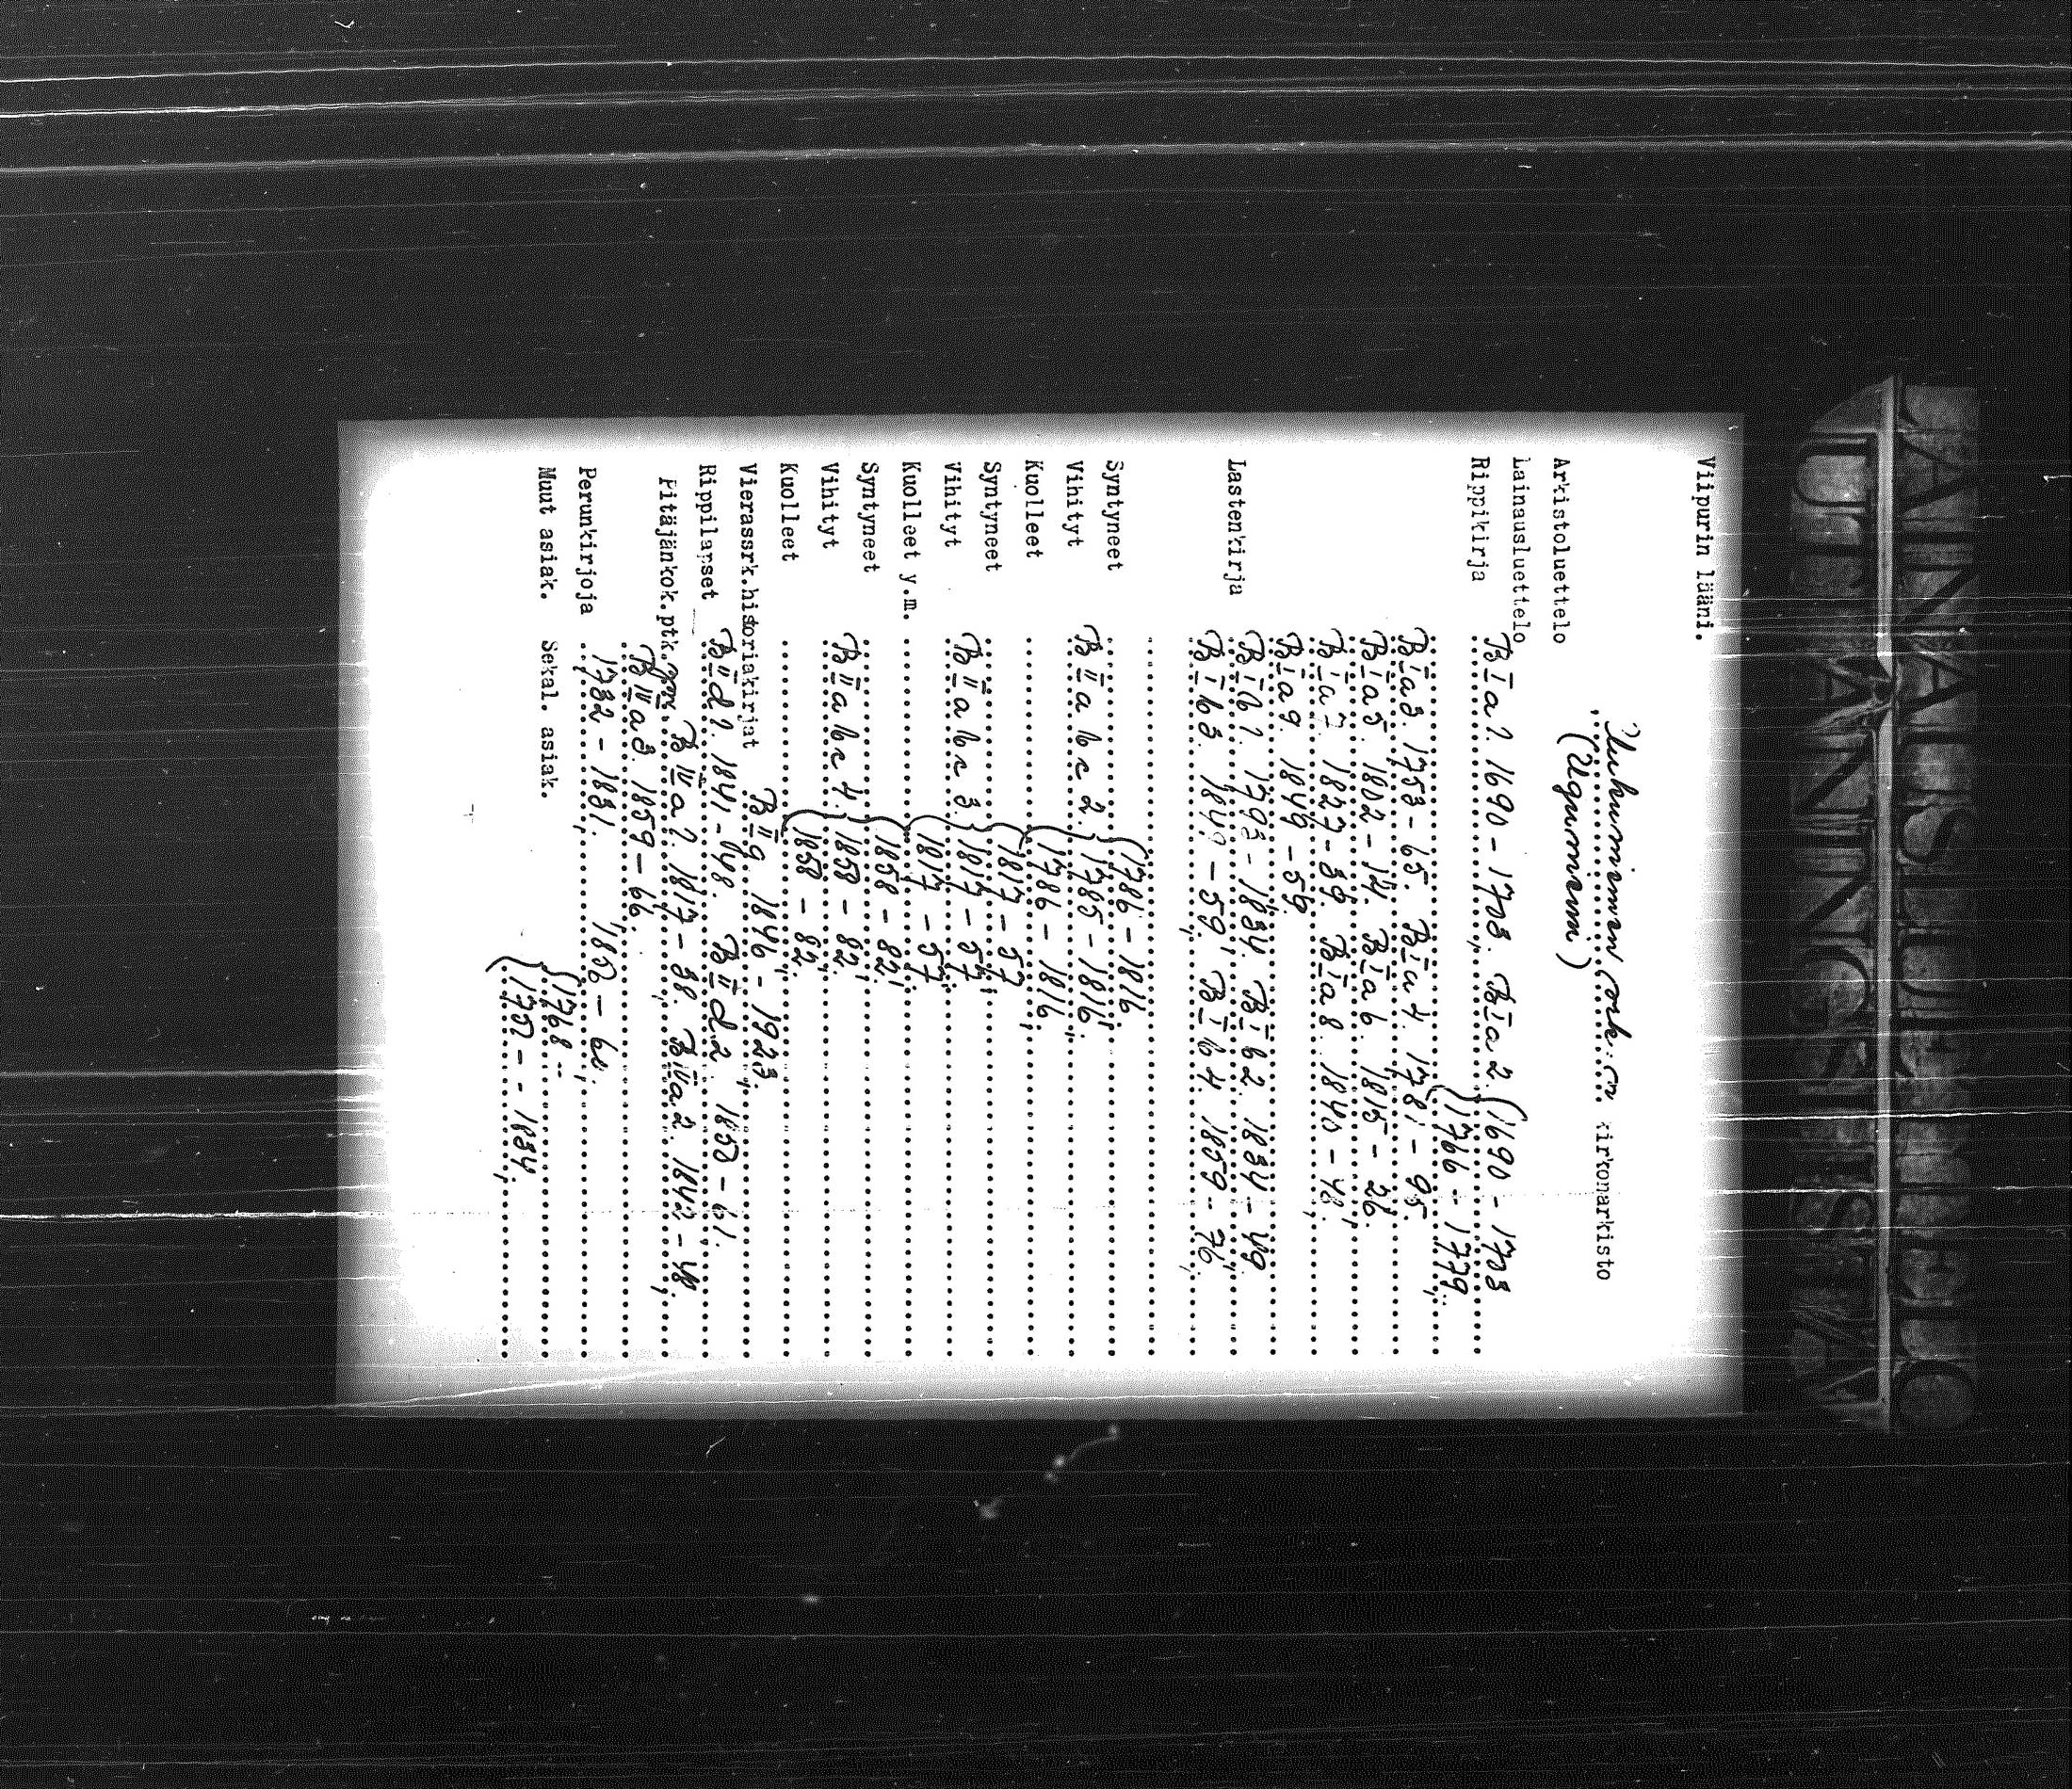 Viipurin lääni.
Uukuniemen srk:n kirkonarkisto
(Ugumiemi)
Arkistoluettelo
Lainausluettelo
Rippikirja B I a 1. 1690 - 1703. B I a 2. {1690 - 1703
{1766 - 1779.
B I a 3. 1753 - 65. B I a 4. 1781 - 95.
B I a 5. 1802 - 14. B I a 6. 1815 - 26.
B I a 7. 1827 - 39. B I a 8. 1840 - 48.
B I a 9. 1849 - 59.
Lastenkirja B I b 1. 1793 - 1834. B I b 2. 1834 - 49
B I b 3. 1849 - 59. B I b 4. 1859 - 76.
Syntyneet {1786 - 1816.
Vihityt B II a b c 2. {1785 - 1816.
Kuolleet {1786 - 1816.
Syntyneet {1817 - 57
Vihityt B II a b c 3. {1817 - 57.
Kuolleet y.m. {1817 - 57
Syntyneet {1858 - 82.
Vihityt B II a b c 4. {1858 - 82.
Kuolleet {1858 - 82.
Vierassrk.historiakirjat B II g. 1846 - 1923.
Rippilapset B II d 1. 1841 - 48. B II d 2. 1850 - 61.
Pitäjänkok.ptk. B IV a 1. 1817 - 38. B IV a 2. 1842 - 48.
B IV a 3. 1859 - 66.
Perunkirjoja 1782 - 1831. 1850 - 60.
Muut asiak. Sekal. asiak. {1768 --
{1750 -- 1834.